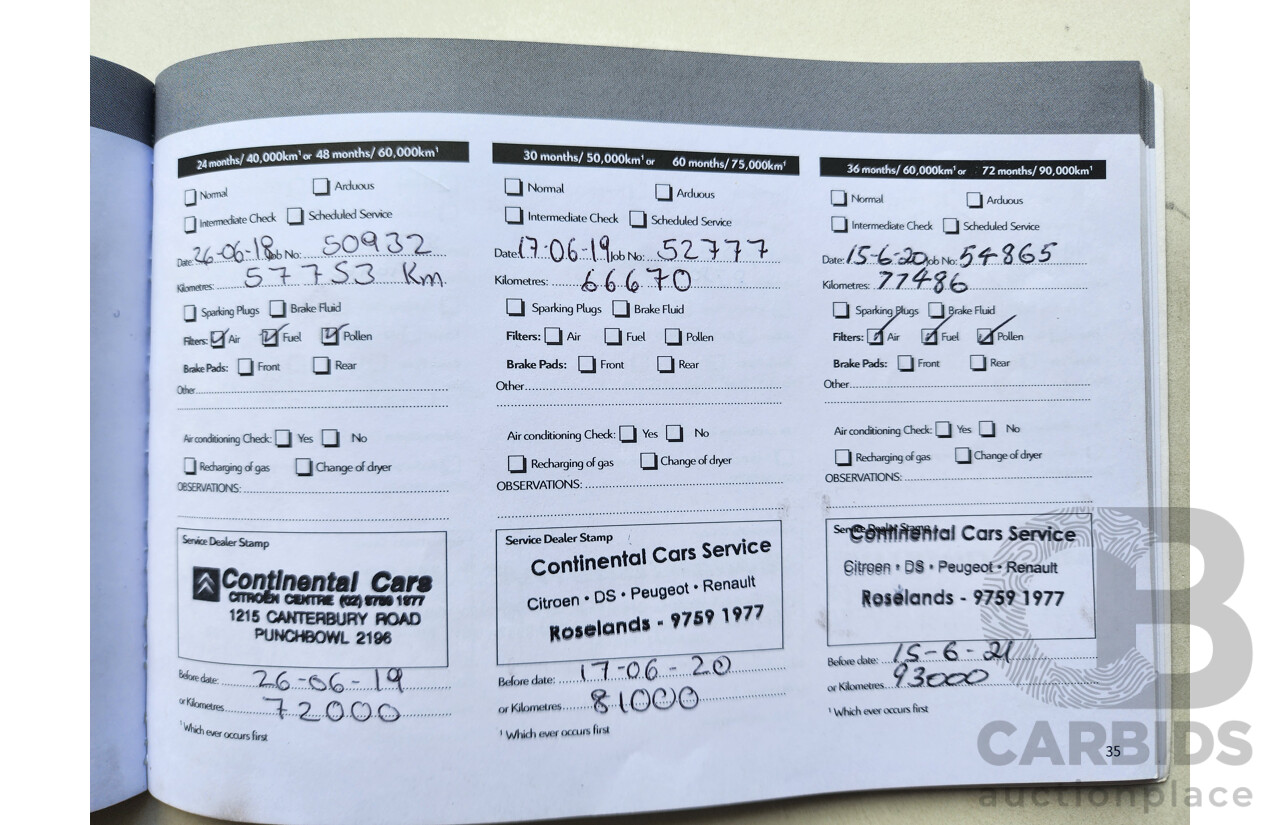 24 months/ 40,000km¹ or 48 months/ 60,000km¹
Normal Arduous
Intermediate Check Scheduled Service
Date: 26-06-18 Job No: 50932
Kilometres: 57753 Km
Sparking Plugs Brake Fluid
Filters: Air Fuel Pollen
Brake Pads: Front Rear
Other
Air conditioning Check: Yes No
Recharging of gas Change of dryer
OBSERVATIONS:
Service Dealer Stamp
Continental Cars
CITROËN CENTRE (02) 9759 1977
1215 CANTERBURY ROAD
PUNCHBOWL 2196
Before date: 26-06-19
or Kilometres 72000
¹ Which ever occurs first
30 months/ 50,000km¹ or 60 months/ 75,000km¹
Normal Arduous
Intermediate Check Scheduled Service
Date: 17-06-19 Job No: 52777
Kilometres: 66670
Sparking Plugs Brake Fluid
Filters: Air Fuel Pollen
Brake Pads: Front Rear
Other
Air conditioning Check: Yes No
Recharging of gas Change of dryer
OBSERVATIONS:
Service Dealer Stamp
Continental Cars Service
Citroen • DS • Peugeot • Renault
Roselands - 9759 1977
Before date: 17-06-20
or Kilometres 81000
¹ Which ever occurs first
36 months/ 60,000km¹ or 72 months/ 90,000km¹
Normal Arduous
Intermediate Check Scheduled Service
Date: 15-6-20 Job No: 54865
Kilometres: 77486
Sparking Plugs Brake Fluid
Filters: Air Fuel Pollen
Brake Pads: Front Rear
Other
Air conditioning Check: Yes No
Recharging of gas Change of dryer
OBSERVATIONS:
Service Dealer Stamp
Continental Cars Service
Citroen • DS • Peugeot • Renault
Roselands - 9759 1977
Before date: 15-6-21
or Kilometres 93000
¹ Which ever occurs first
35
CARBIDS
auctionplace